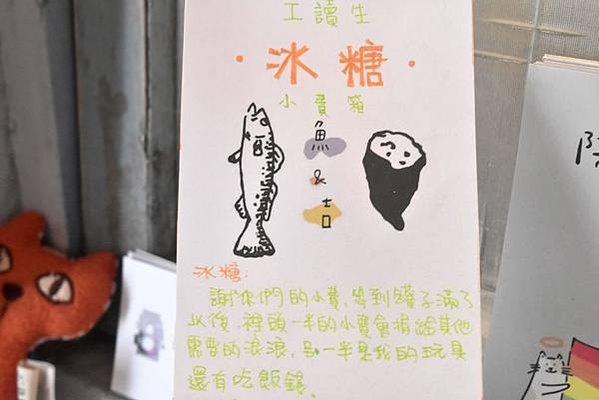 工讀生
·冰糖·
小費箱
魚
&
吉
冰糖:
謝你們的小費,等到罐子滿了
以後,裡頭一半的小費會捐給其他
需要的浪浪,另一半是我的玩具
還有吃飯錢.